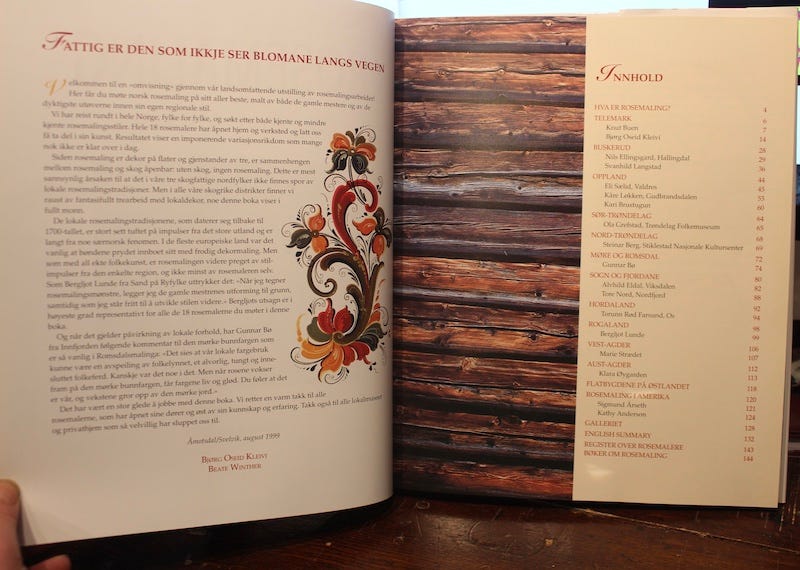 FATTIG ER DEN SOM IKKJE SER BLOMANE LANGS VEGEN
Velkommen til en «omvisning» gjennom vår landsomfattende utstilling av rosemalingsarbeider!
Her får du møte norsk rosemaling på sitt aller beste, malt av både de gamle mestrene og av de
dyktigste utøverne innen sin egen regionale stil.
Vi har reist rundt i hele Norge, fylke for fylke, og søkt etter både kjente og mindre
kjente rosemalingsstiler. Hele 18 rosemalere har åpnet hjem og verksted og latt oss
få ta del i sin kunst. Resultatet viser en imponerende variasjonsrikdom som mange
nok ikke er klar over i dag.
Siden rosemaling er dekor på flater og gjenstander av tre, er sammenhengen
mellom rosemaling og skog åpenbar: uten skog, ingen rosemaling. Dette er mest
sannsynlig årsaken til at det i våre tre skogfattige nordfylker ikke finnes spor av
lokale rosemalingstradisjoner. Men i alle våre skogrike distrikter finner vi
raust av fantasifullt trearbeid med lokaldekor, noe denne boka viser i
fullt monn.
De lokale rosemalingstradisjonene, som daterer seg tilbake til
1700-tallet, er stort sett tuftet på impulser fra det store utland og er
langt fra noe særnorsk fenomen. I de fleste europeiske land var det
vanlig at bøndene prydet innboet sitt med frodig dekormaling. Men
som med all ekte folkekunst, er rosemalingen videre preget av stil-
impulser fra den enkelte region, og ikke minst av rosemaleren selv.
Som Bergljot Lunde fra Sand på Ryfylke uttrykker det: «Når jeg tegner
rosemalingsmønstre, legger jeg de gamle mestrenes utforming til grunn,
samtidig som jeg står fritt til å utvikle stilen videre.» Bergljots utsagn er i
høyeste grad representativt for alle de 18 rosemalerne du møter i denne
boka.
Og når det gjelder påvirkning av lokale forhold, har Gunnar Bø
fra Innfjorden følgende kommentar til den mørke bunnfargen som
er så vanlig i Romsdalsmalinga: «Det sies at vår lokale fargebruk
kunne være en avspeiling av folkelynnet, et alvorlig, tungt og inne-
sluttet folkeferd. Kanskje var det noe i det. Men når rosene vokser
fram på den mørke bunnfargen, får fargene liv og glød. Du føler at det
er vår, og vekstene gror opp av den mørke jord.»
Det har vært en stor glede å jobbe med denne boka. Vi retter en varm takk til alle
rosemalerne, som har åpnet sine dører og øst av sin kunnskap og erfaring. Takk også til alle lokalmuseer
og privathjem som så velvillig har sluppet oss til.
Åmotsdal/Svelvik, august 1999
BJØRG OSEID KLEIVI
BEATE WINTHER
INNHOLD
HVA ER ROSEMALING? 4
TELEMARK 6
Knut Buen 7
Bjørg Oseid Kleivi 14
BUSKERUD 28
Nils Ellingsgard, Hallingdal 29
Svanhild Langstad 36
OPPLAND 44
Eli Sælid, Valdres 45
Kåre Løkken, Gudbrandsdalen 55
Kari Brustugun 60
SØR-TRØNDELAG 64
Ola Grefstad, Trøndelag Folkemuseum 65
NORD-TRØNDELAG 68
Steinar Berg, Stiklestad Nasjonale Kultursenter 69
MØRE OG ROMSDAL 72
Gunnar Bø 74
SOGN OG FJORDANE 80
Alvhild Eldal, Viksdalen 82
Tore Nord, Nordfjord 88
HORDALAND 92
Torunn Rød Farsund, Os 94
ROGALAND 98
Bergljot Lunde 99
VEST-AGDER 106
Marie Strædet 107
AUST-AGDER 112
Klara Øygarden 113
FLATBYGDENE PÅ ØSTLANDET 118
ROSEMALING I AMERIKA 120
Sigmund Årseth 121
Kathy Anderson 124
GALLERIET 128
ENGLISH SUMMARY 132
REGISTER OVER ROSEMALERE 143
BØKER OM ROSEMALING 144